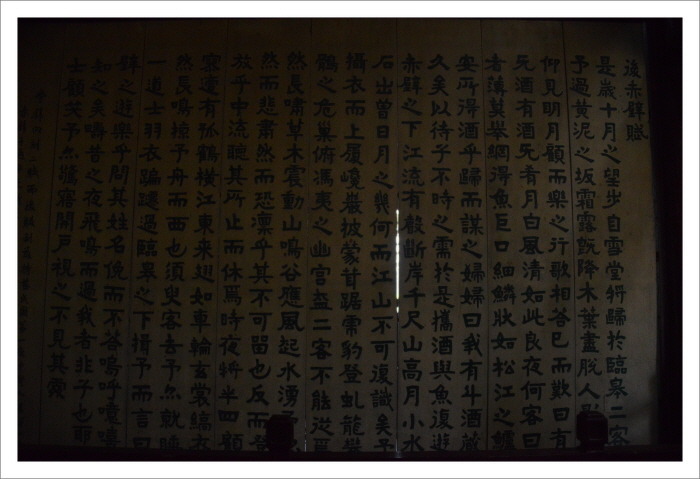 後赤壁賦
是歲十月之望步自雪堂將歸於臨皋二客
予過黃泥之坂霜露既降木葉盡脫人影
仰見明月顧而樂之行歌相答已而歎曰有
无酒有酒无肴月白風清如此良夜何客曰
者薄莫舉網得魚巨口細鱗狀如松江之鱸
安所得酒乎歸而謀之婦婦曰我有斗酒藏
久矣以待子不時之需於是攜酒與魚復遊
赤壁之下江流有聲斷岸千尺山高月小水
石出曾日月之幾何而江山不可復識矣予
攝衣而上履巉巖披蒙茸踞虎豹登虬龍攀
鶻之危巢俯馮夷之幽宮蓋二客不能從焉
然長嘯草木震動山鳴谷應風起水湧予
然而悲肅然而恐凜乎其不可留也反而登
放乎中流聽其所止而休焉時夜將半四顧
寥適有孤鶴橫江東來翅如車輪玄裳縞衣
然長鳴掠予舟而西也須臾客去予亦就睡
一道士羽衣蹁躚過臨皋之下揖予而言曰
壁之遊樂乎問其姓名俛而不答嗚呼噫嘻
知之矣疇昔之夜飛鳴而過我者非子也耶
士顧笑予亦驚寤開戶視之不見其處